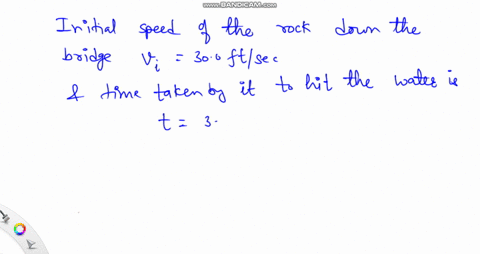 RECORDED WITH BANDICAM.COM
Initial speed of the rock down the
bridge Vi = 30.0 ft/sec
& time taken by it to hit the water is
t = 3.